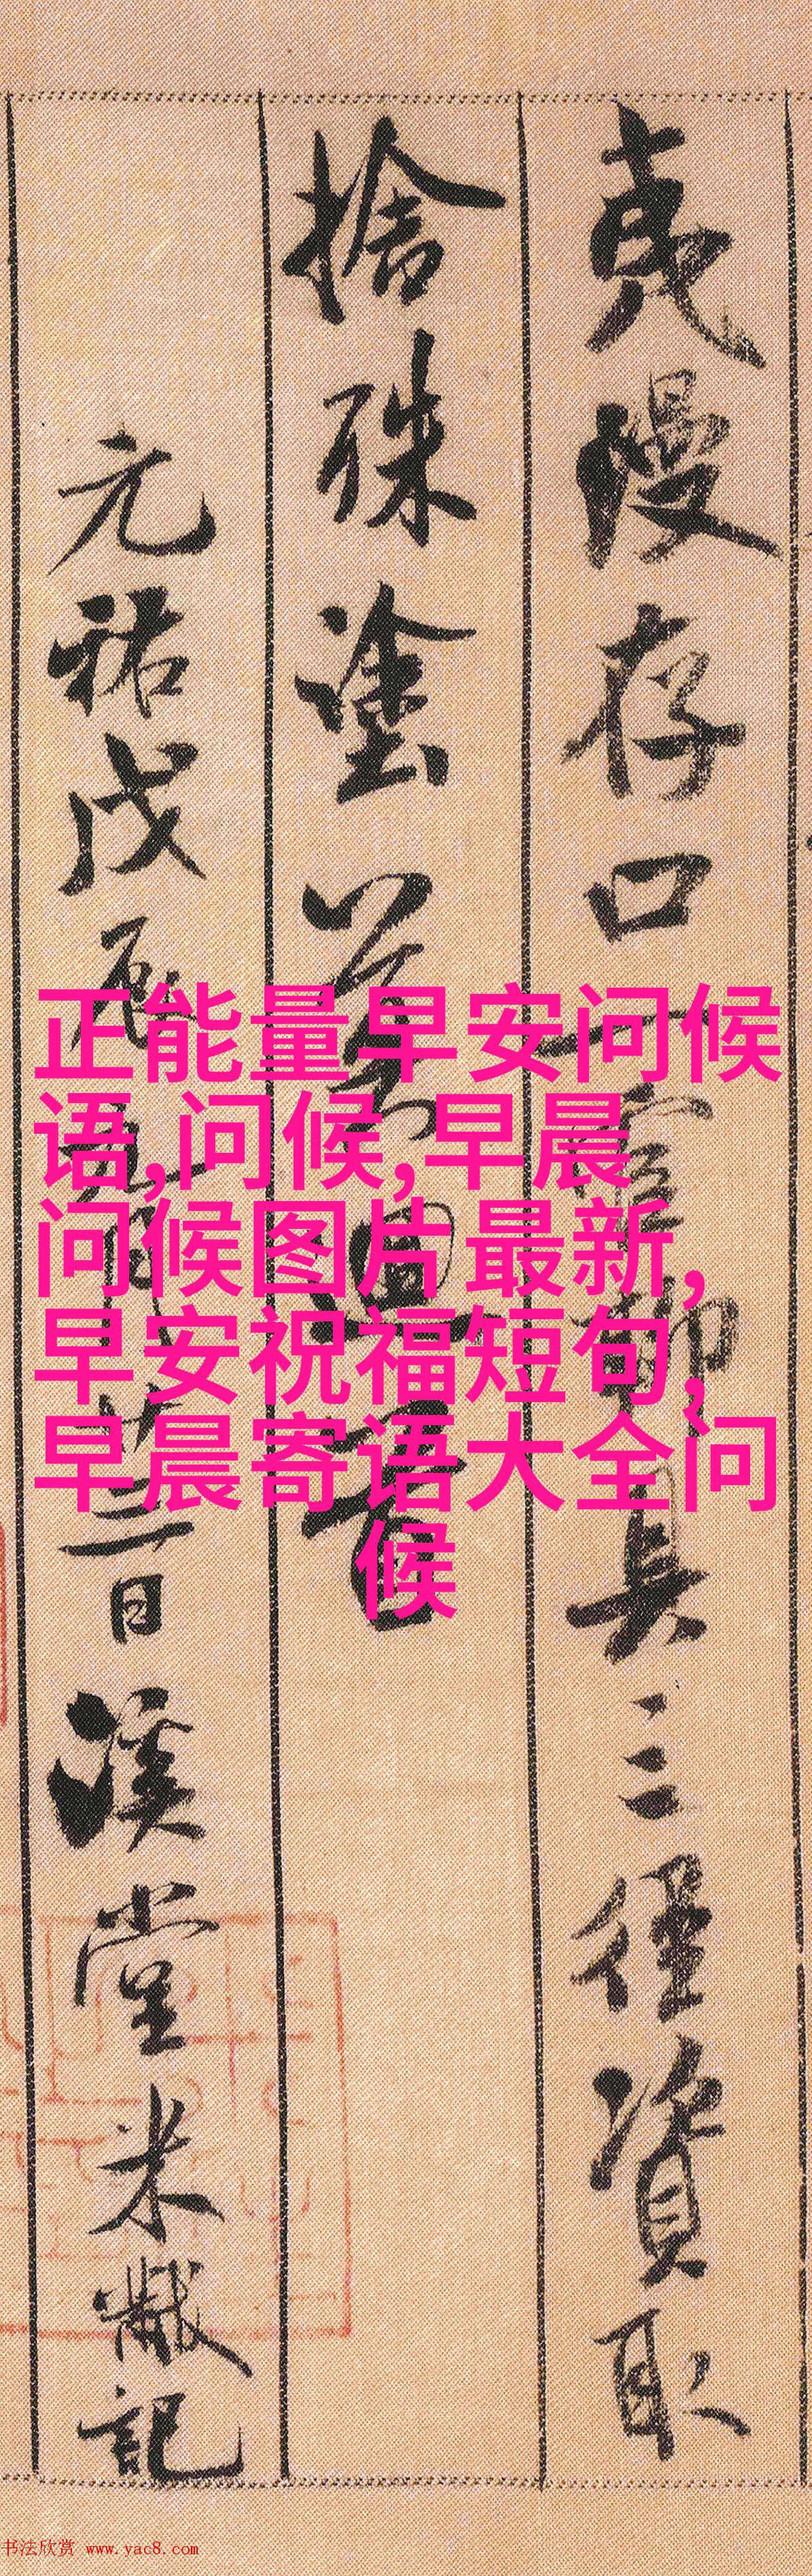 夷漫存口一官聊具三徑資取
捨殊塗莫回首
元祐戊辰九月廿三日溪堂米黻記
正能量早安问候
语,问候,早晨
问候图片最新,
早安祝福短句,
早晨寄语大全问
候
书法欣赏 www.yac8.com